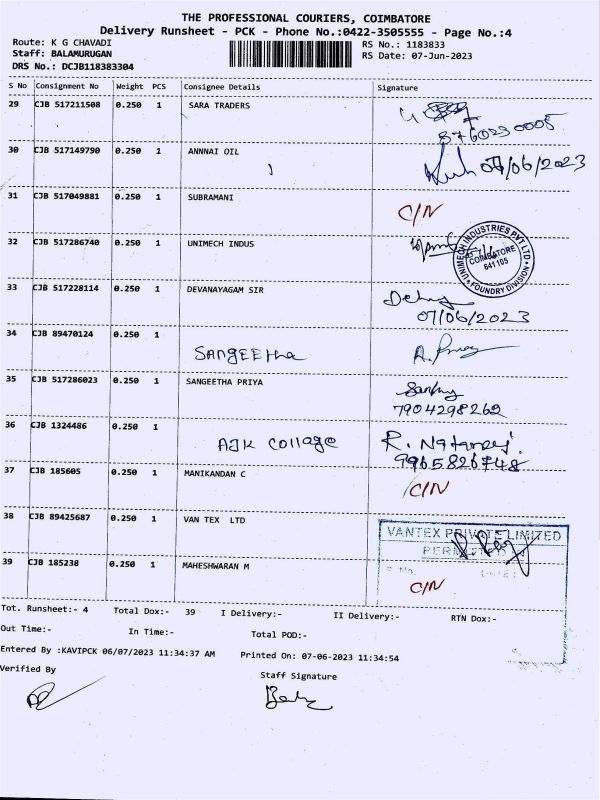 THE PROFESSIONAL COURIERS, COIMBATORE
Delivery Runsheet - PCK - Phone No.:0422-3505555 - Page No.:4
Route: K G CHAVADI
RS No.: 1183833
Staff: BALAMURUGAN
RS Date: 07-Jun-2023
DRS No.: DCJB118383304
S No Consignment No Weight PCS Consignee Details Signature
29 CJB 517211508 0.250 1 SARA TRADERS
8760230005
30 CJB 517149790 0.250 1 ANNNAI OIL 07/06/2023
31 CJB 517049881 0.250 1 SUBRAMANI
C/N
32 CJB 517286740 0.250 1 UNIMECH INDUS
UNIMECH INDUSTRIES PVT LTD
COIMBATORE
641 105
FOUNDRY DIVISION
33 CJB 517228114 0.250 1 DEVANAYAGAM SIR
07/06/2023
34 CJB 89470124 0.250 1
SANGEEtha
35 CJB 517286023 0.250 1 SANGEETHA PRIYA
7904298262
36 CJB 1324486 0.250 1
AJK Collage R. Nataraj
9965826748
37 CJB 185605 0.250 1 MANIKANDAN C
C/N
38 CJB 89425687 0.250 1 VAN TEX LTD
VANTEX PRIVATE LIMITED
39 CJB 185238 0.250 1 MAHESHWARAN M
C/N
Tot. Runsheet:- 4 Total Dox:- 39 I Delivery:- II Delivery:- RTN Dox:-
Out Time:- In Time:- Total POD:-
Entered By :KAVIPCK 06/07/2023 11:34:37 AM Printed On: 07-06-2023 11:34:54
Verified By Staff Signature